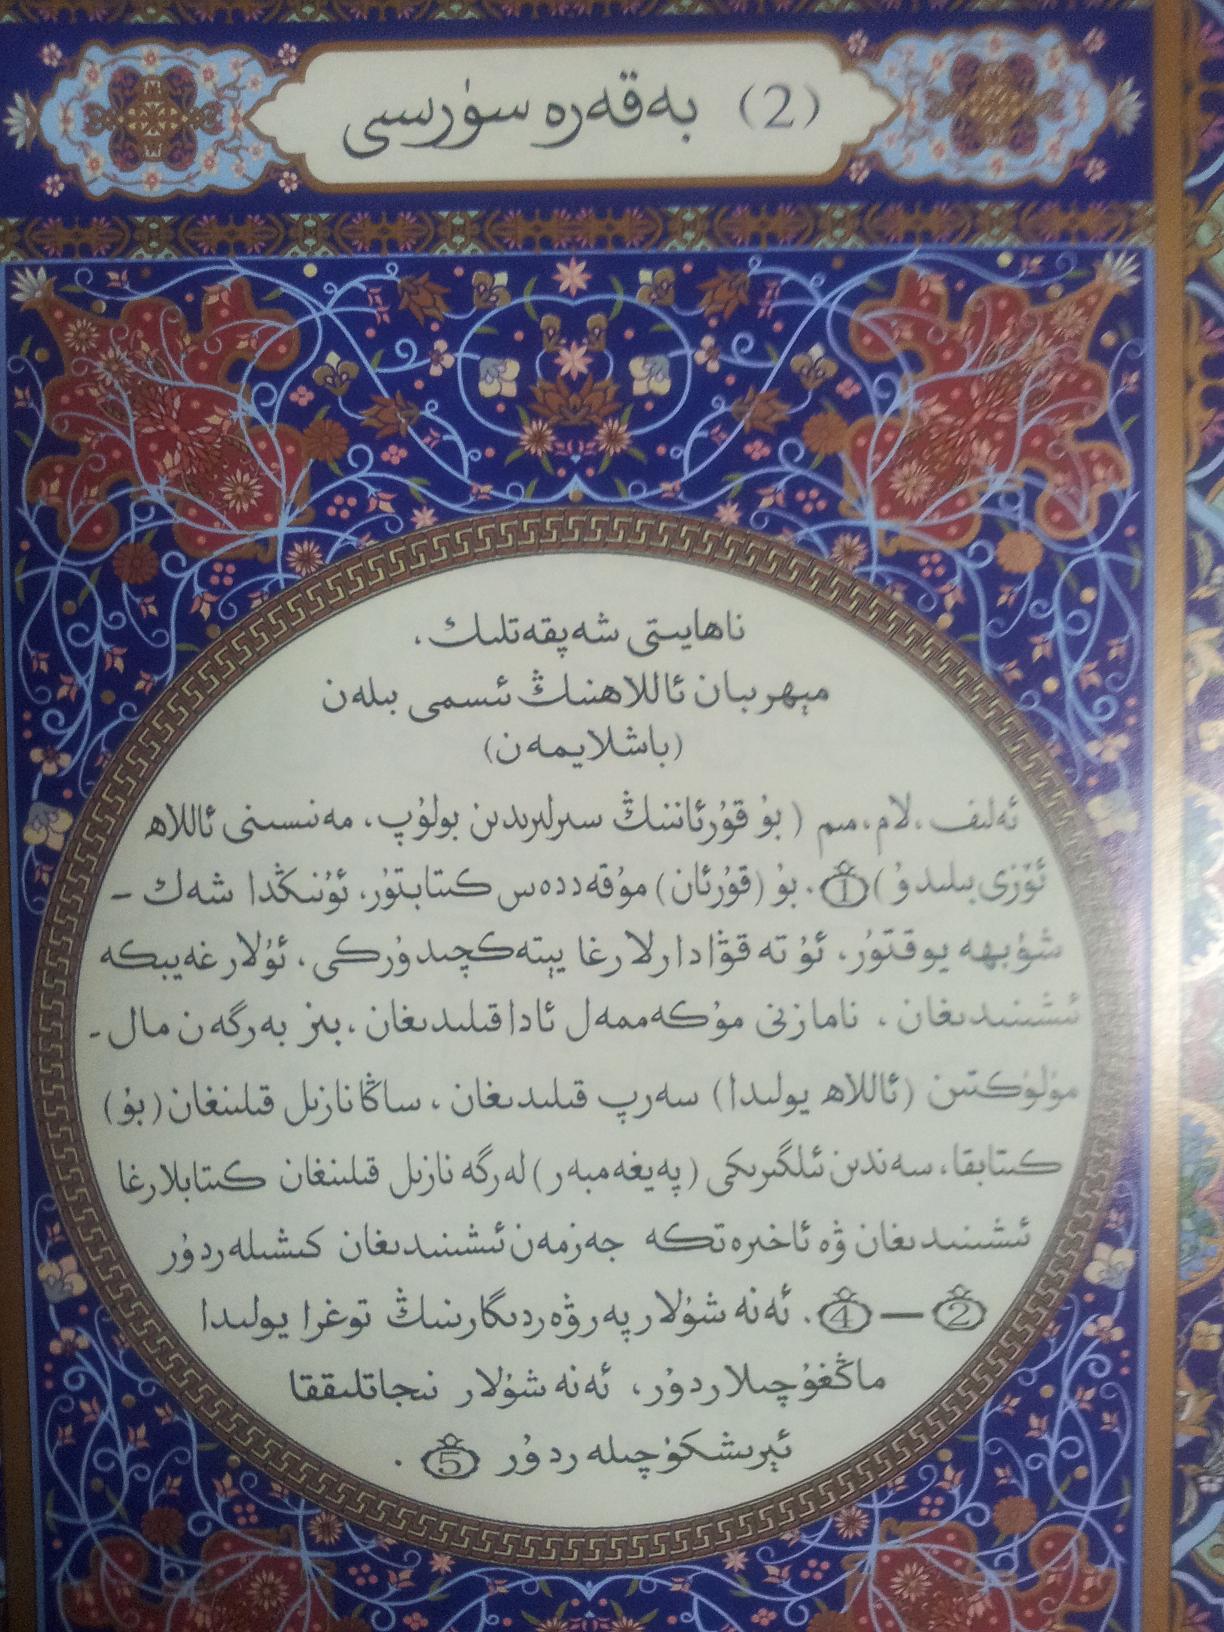 (2) بەقەرە سۈرىسى
ناھايىتى شەپقەتلىك،
مېھرىبان ئاللاھنىڭ ئىسمى بىلەن
(باشلايمەن)
ئەلىف، لام، مىم (بۇ قۇرئاننىڭ سىرلىرىدىن بولۇپ، مەنىسىنى ئاللاھ
ئۆزى بىلىدۇ)①. بۇ (قۇرئان) مۇقەددەس كىتابتۇر، ئۇنىڭدا شەك -
شۈبھە يوقتۇر، ئۇ تەقۋادارلارغا يېتەكچىدۇركى، ئۇلار غەيبكە
ئىشىنىدىغان، نامازنى مۇكەممەل ئادا قىلىدىغان، بىز بەرگەن مال -
مۈلۈكتىن (ئاللاھ يولىدا) سەرپ قىلىدىغان، ساڭا نازىل قىلىنغان (بۇ)
كىتابقا، سەندىن ئىلگىرىكى (پەيغەمبەر)لەرگە نازىل قىلىنغان كىتابلارغا
ئىشىنىدىغان ۋە ئاخىرەتكە جەزمەن ئىشىنىدىغان كىشىلەردۇر
②—④. ئەنە شۇلار پەرۋەردىگارىنىڭ توغرا يولىدا
ماڭغۇچىلاردۇر، ئەنە شۇلار نىجاتلىققا
ئېرىشكۈچىلەردۇر ⑤.